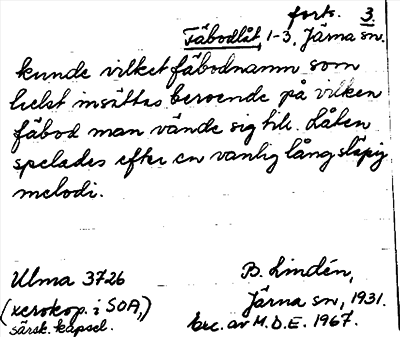 forts. 3.
Fäbodlåt, 1-3. Järna sn.
kunde vilket fäbodnamn som
helst insättas beroende på vilken
fäbod man vände sig till. Låten
spelades efter en vanlig lång släpig
melodi.
Ulma 3726
B. Lindén,
(xerokop. i SOA,)
Järna sn, 1931.
särsk. kapsel.
exc. av M.D.E. 1967.